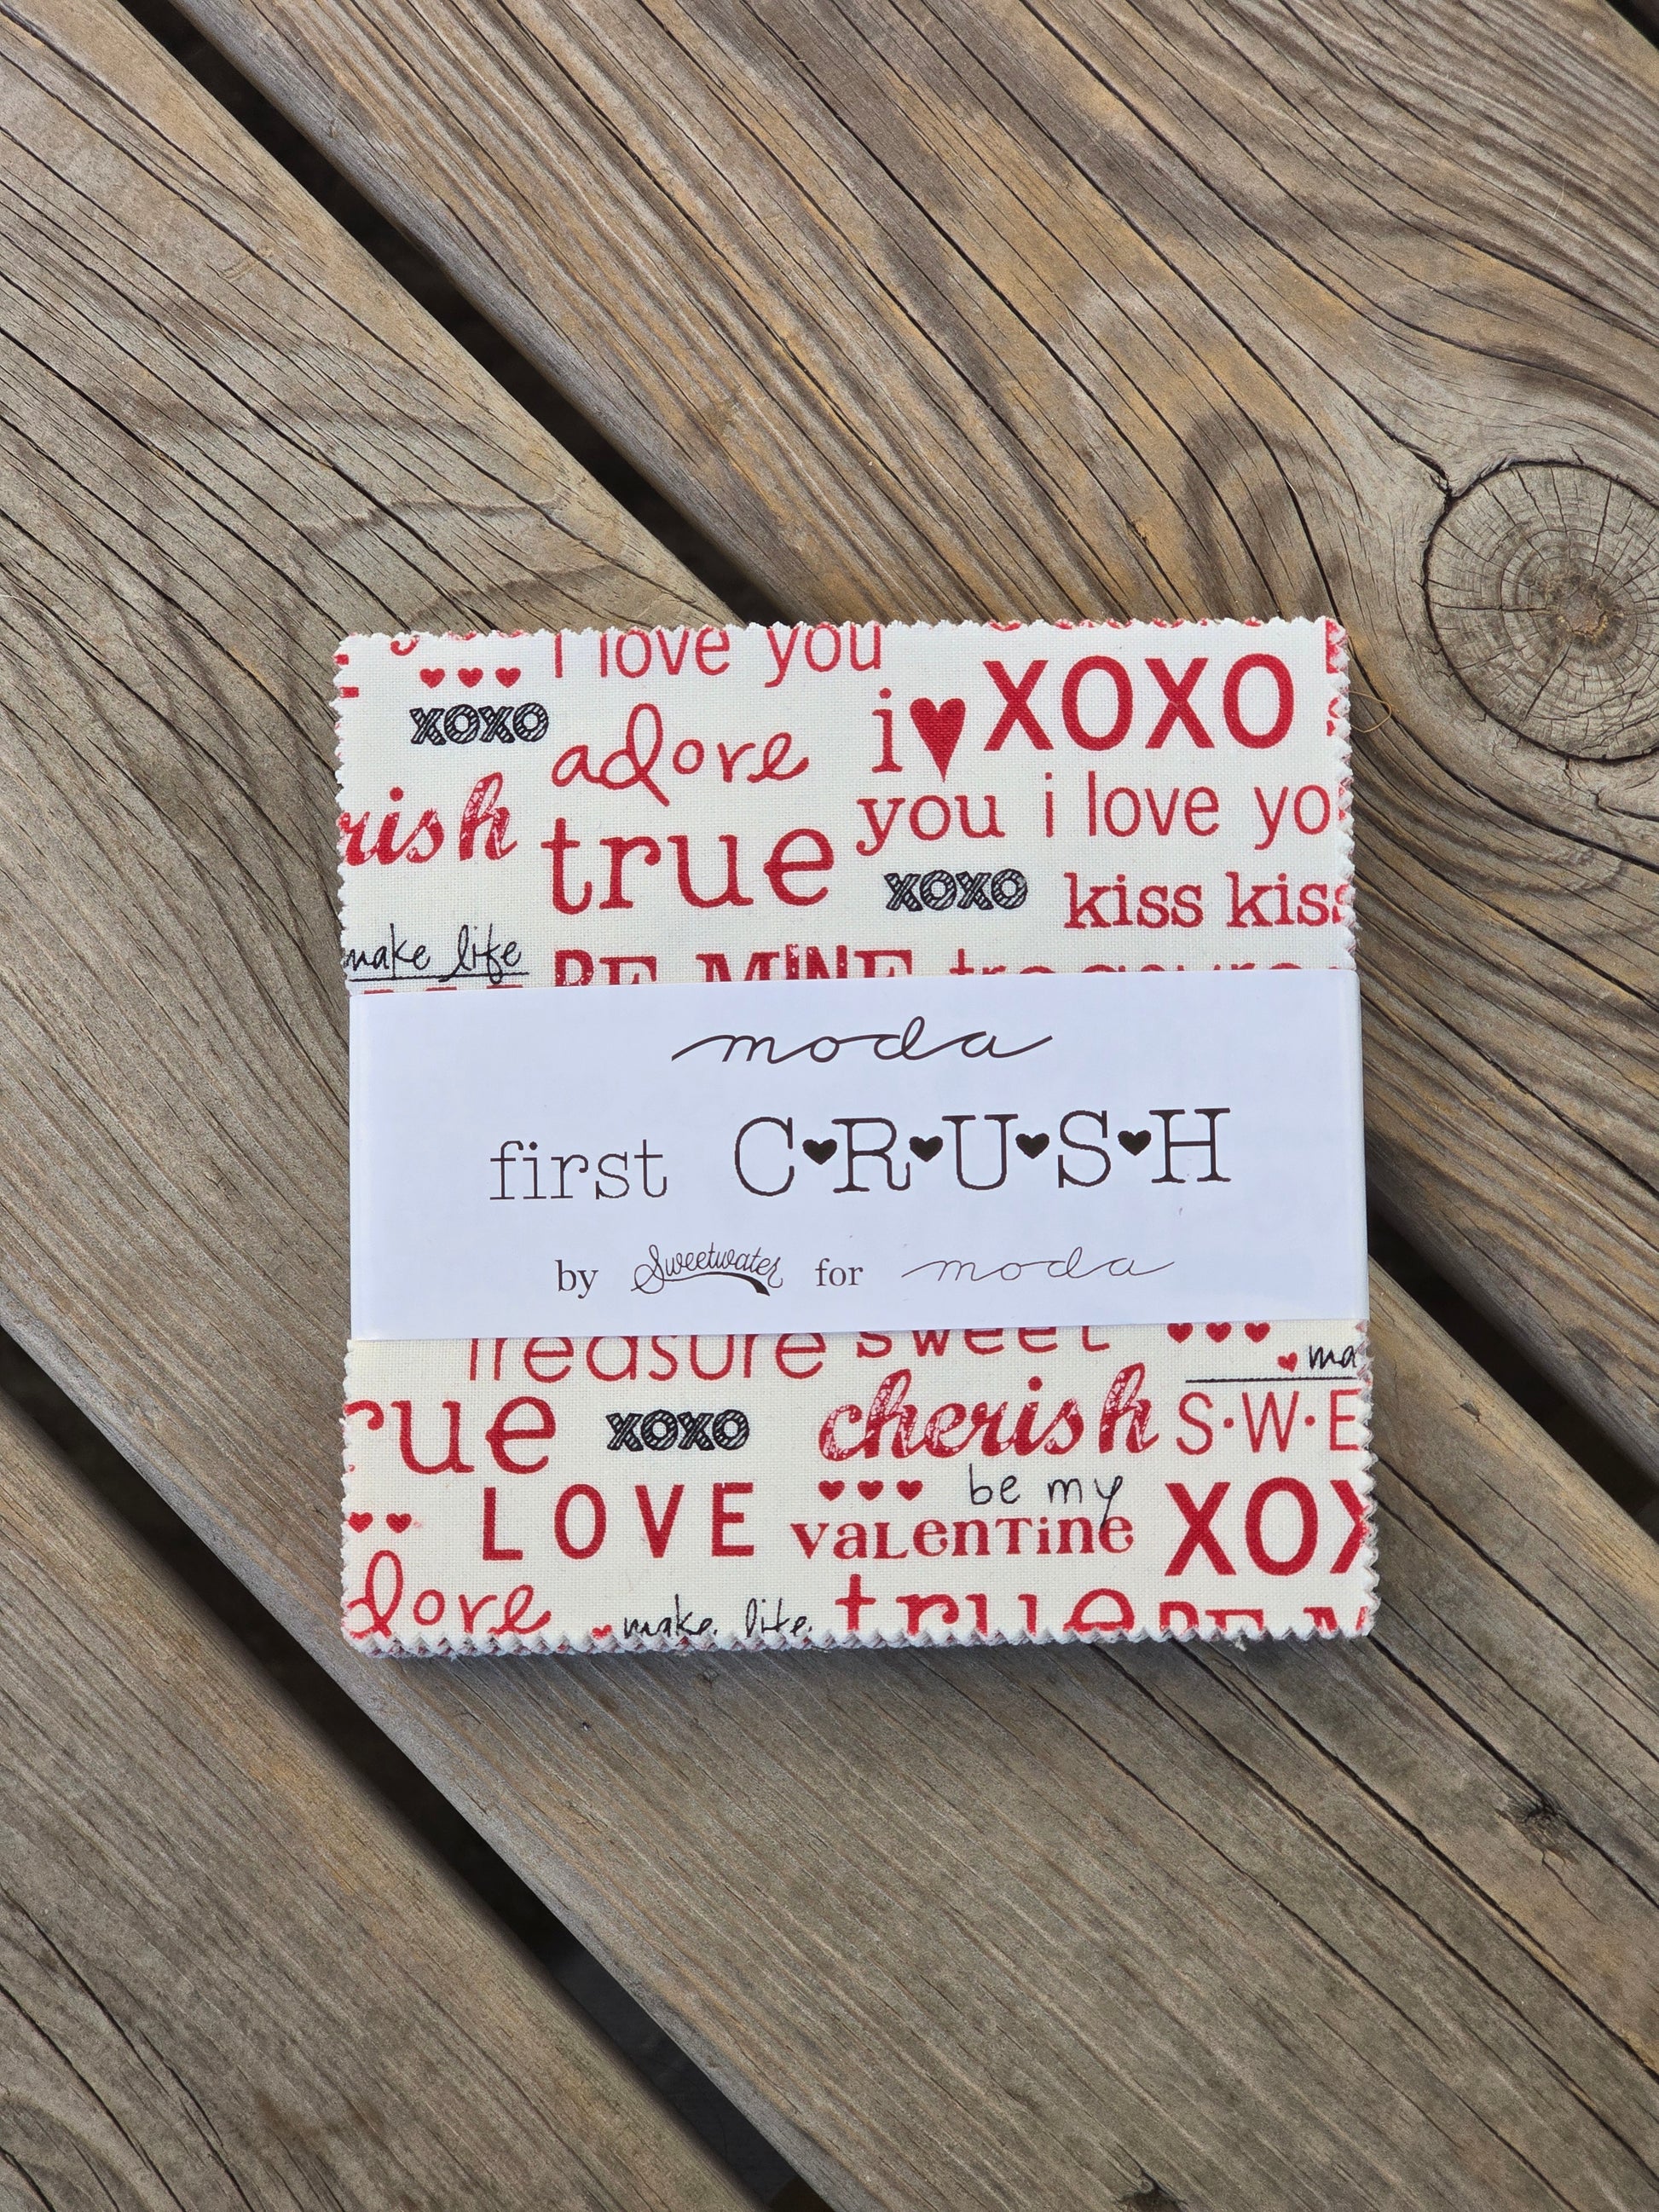 i love you
xoxo adore i♥ XOXO
rish true you i love yo
xoxo kiss kiss
make life BE MINE treasure
moda
first C♥R♥U♥S♥H
by Sweetwater for moda
treasure sweet
ma
rue xoxo cherish S·W·E
LOVE be my XOX
valentine
dore make life true BE M